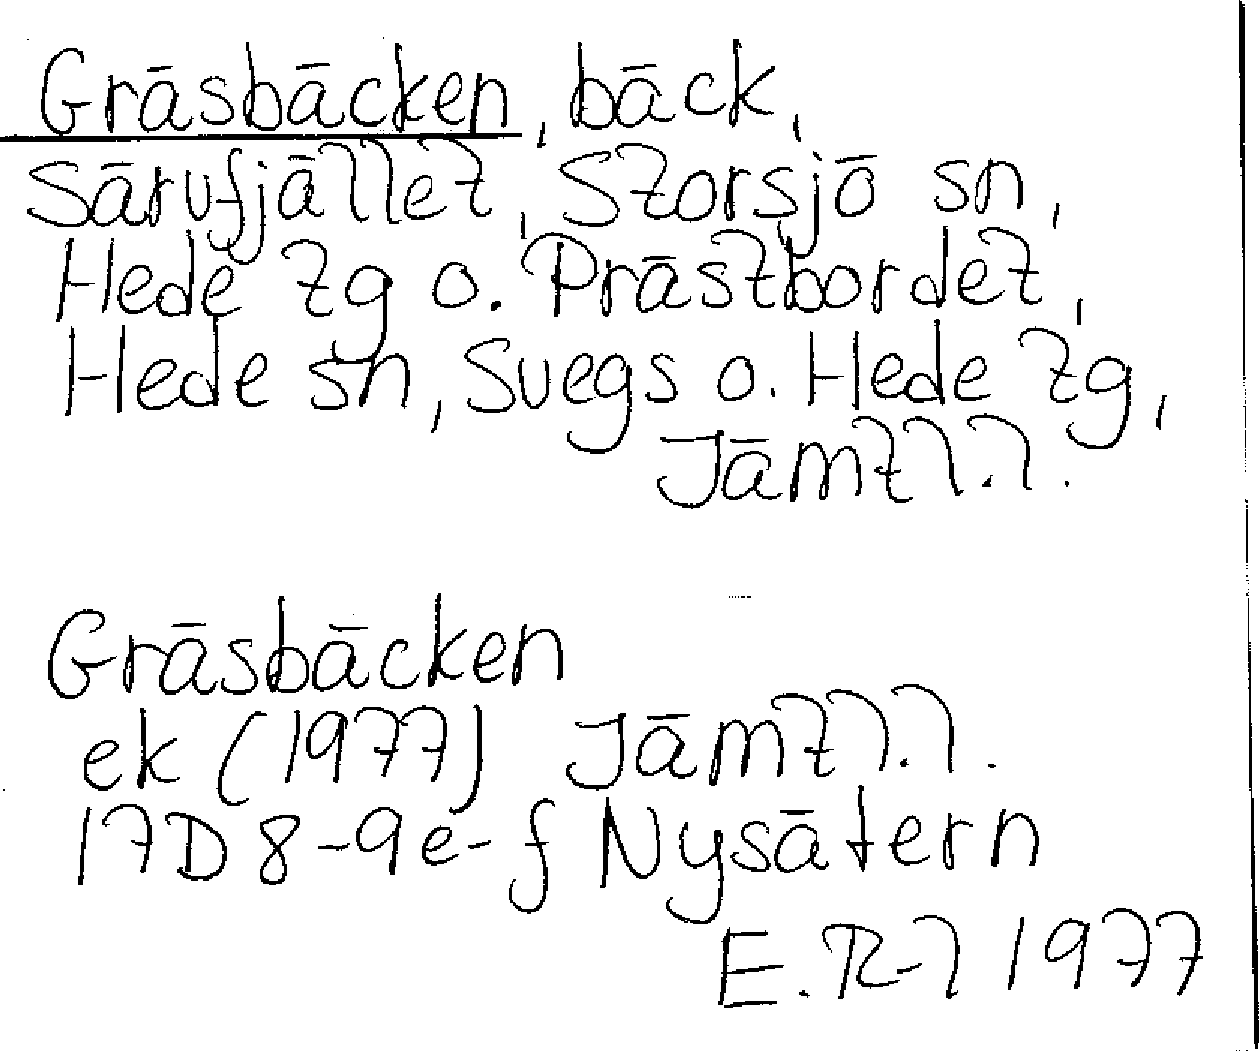 Gräsbäcken, bäck,
Särvfjället, Storsjö sn,
Hede tg o. Prästbordet,
Hede sn, Svegs o. Hede tg,
Jämtl.l.
Gräsbäcken
ek (1977) Jämtl.l.
17D 8-9e-f Nysätern
E.R-l 1977